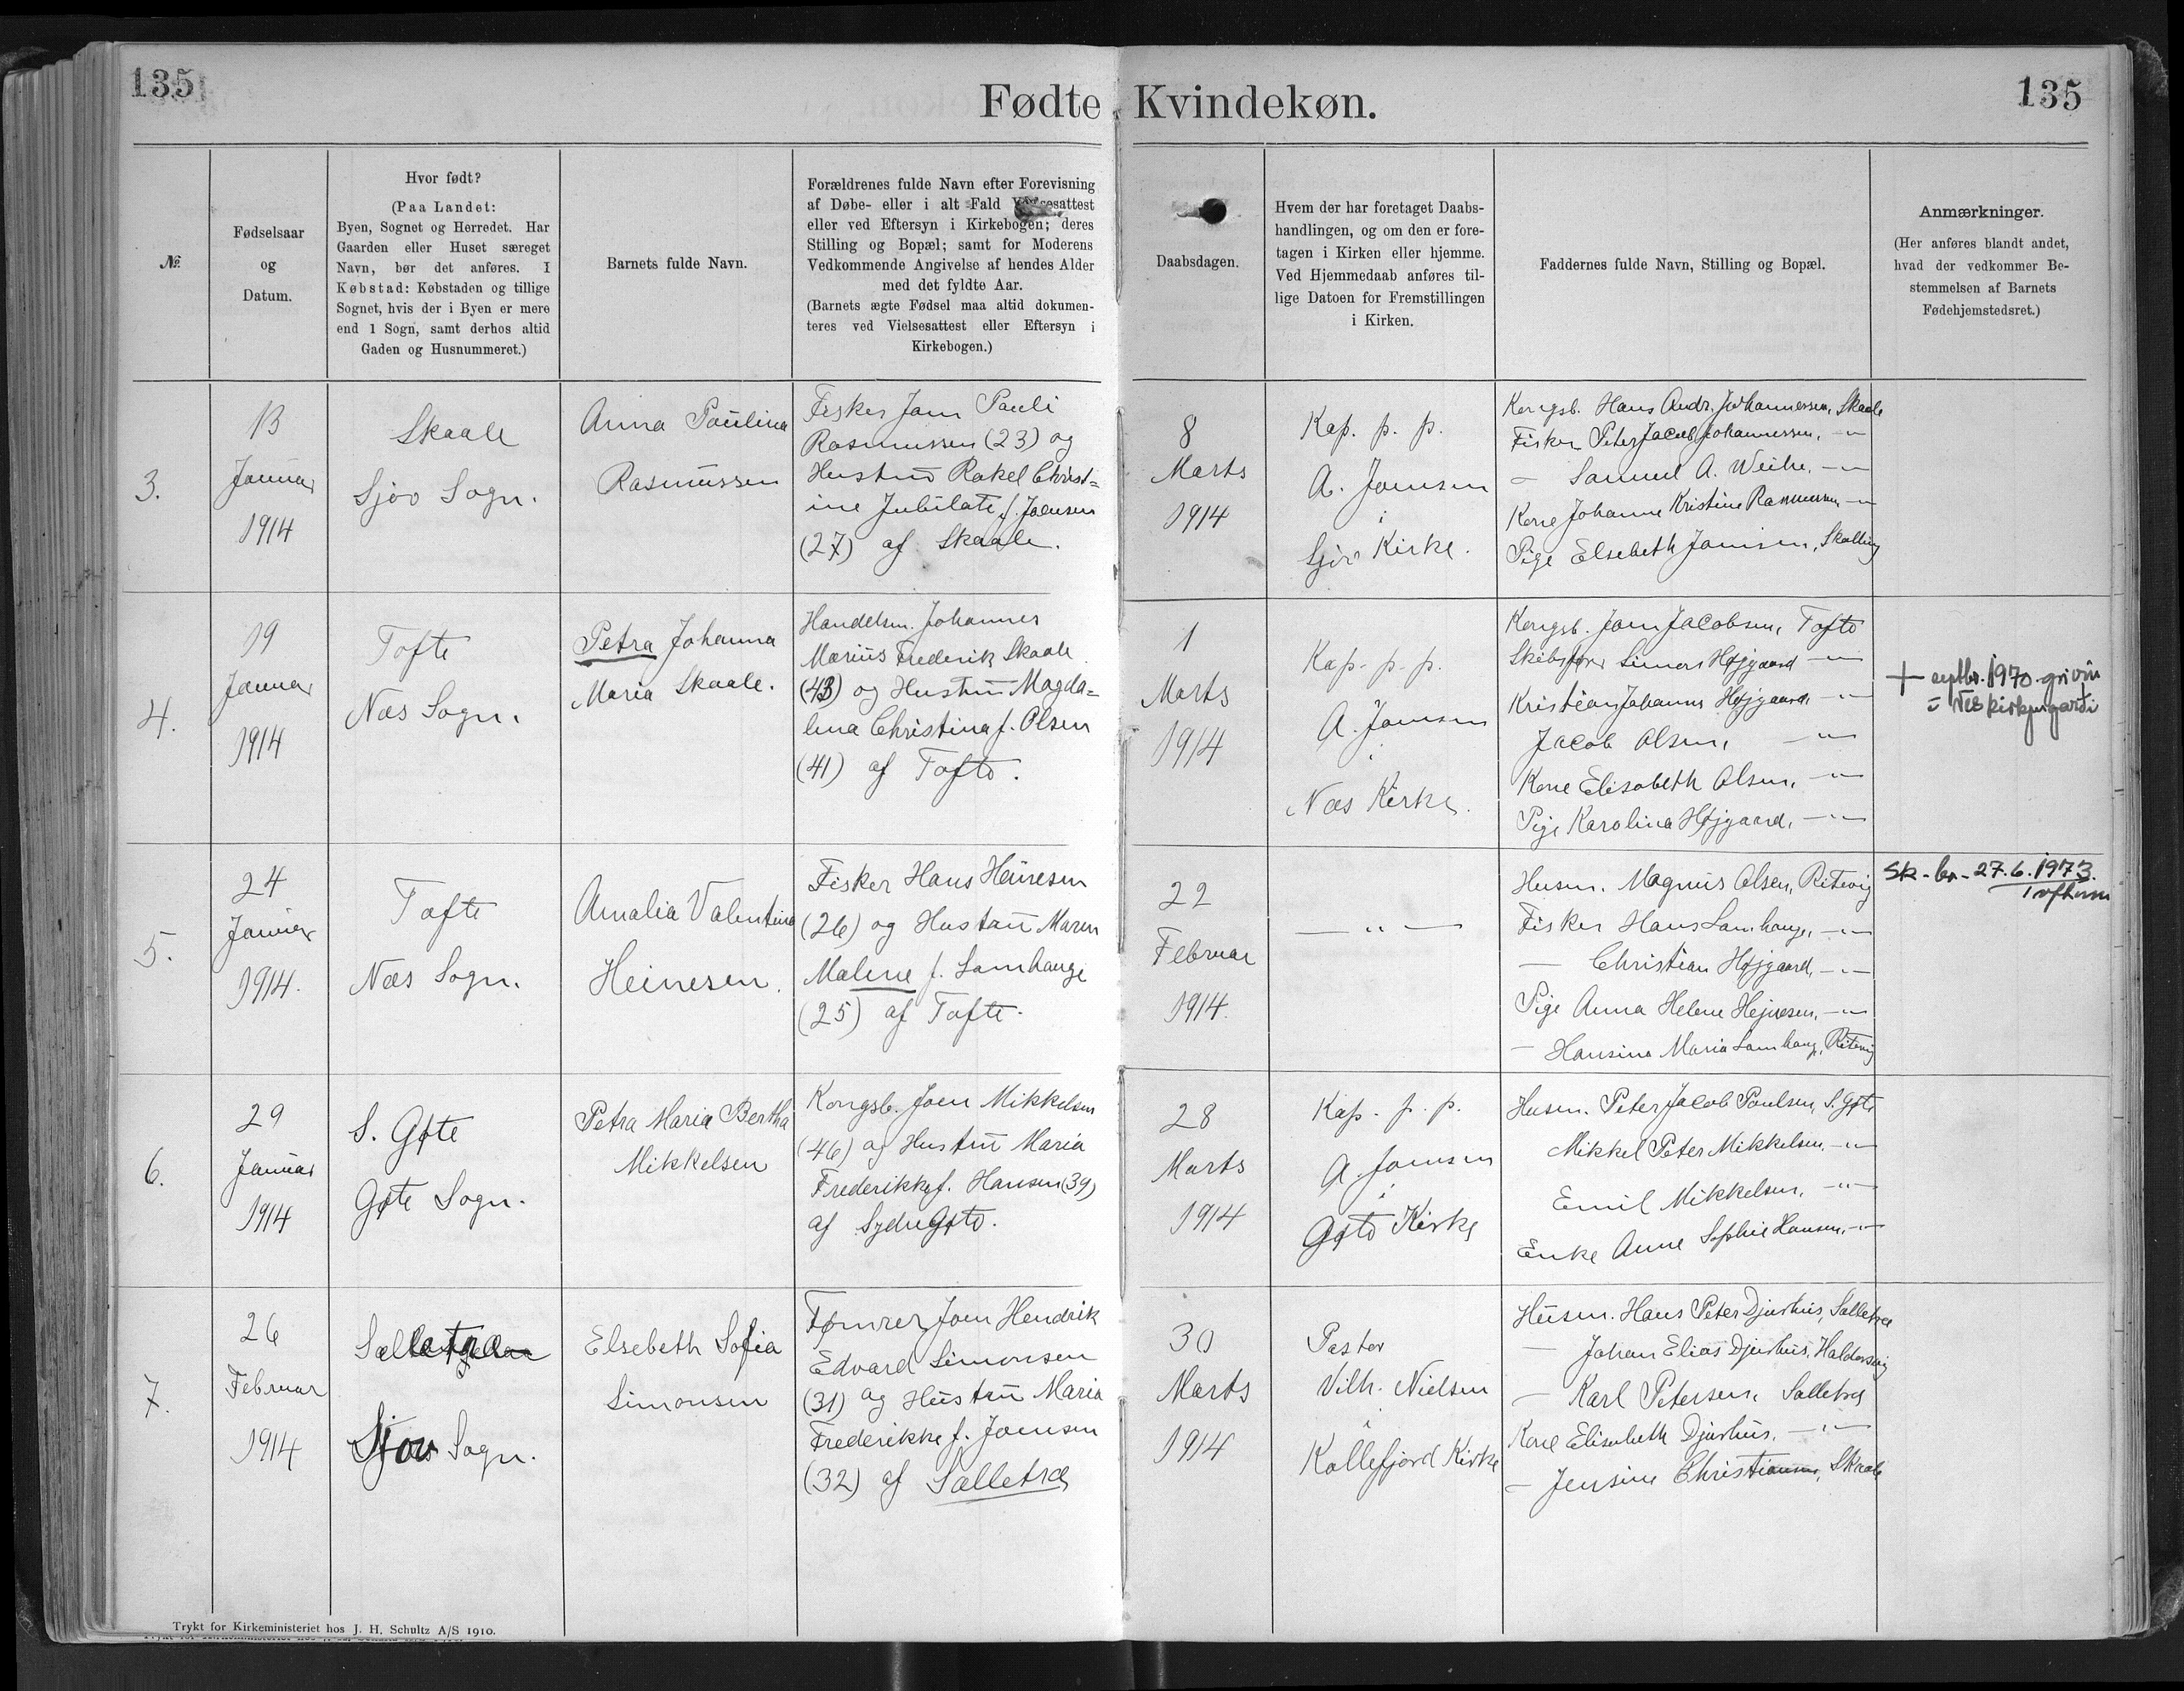 135
Fødte Kvindekøn.
135
№
Fødselsaar
og
Datum.
Hvor født?
(Paa Landet:
Byen, Sognet og Herredet. Har
Gaarden eller Huset særeget
Navn, bør det anføres. I
Købstad: Købstaden og tillige
Sognet, hvis der i Byen er mere
end 1 Sogn, samt derhos altid
Gaden og Husnummeret.)
Barnets fulde Navn.
Forældrenes fulde Navn efter Forevisning
af Døbe- eller i alt Fald
eller ved Eftersyn i Kirkebogen; deres
Stilling og Bopæl; samt for Moderens
Vedkommende Angivelse af hendes Alder
med det fyldte Aar.
(Barnets ægte Fødsel maa altid dokumen-
teres ved Vielsesattest eller Eftersyn i
Kirkebogen.)
Daabsdagen.
Hvem der har foretaget Daabs-
handlingen, og om den er fore-
tagen i Kirken eller hjemme.
Ved Hjemmedaab anføres til-
lige Datoen for Fremstillingen
i Kirken.
Faddernes fulde Navn, Stilling og Bopæl.
Anmærkninger.
(Her anføres blandt andet,
hvad der vedkommer Be-
stemmelsen af Barnets
Fødehjemstedsret.)
3.
13
Januar
1914
Skaale
Sjov Sogn.
Anna Paulina
Rasmussen
Fisker Joen Pauli
Rasmussen (23) og
Hustru Rakel Christ=
ine Jubilate f. Joensen
(27) af Skaale.
8
Marts
1914
Kap. p. p.
A. Joensen
i
Sjov Kirke.
Kongsb. Hans Andr. Johannessen, Skaale
Fisker Peter Jacob Johannessen, -"-
— Samuel A. Weihe, -"-
Kone Johanne Kristine Rasmussen -"-
Pige Elsebeth Joensen, Skælling
4.
19
Januar
1914
Tofte
Næs Sogn.
Petra Johanna
Maria Skaale.
Handelsm. Johannes
Marius Frederik Skaale
(43) og Hustru Magda=
lena Christina f. Olsen
(41) af Tofte.
1
Marts
1914
Kap. p. p.
A. Joensen
i
Næs Kirke.
Kongsb. Joen Jacobsen, Tofte
Skibsfører Simon Højgaard -"-
Kristian Johannes Højgaard, -"-
Jacob Olsen, -"-
Kone Elisabeth Olsen, -"-
Pige Karolina Højgaard, -"-
+ septbr. 1970 grivin
í Nes kirkjugarði
5.
24
Januar
1914.
Tofte
Næs Sogn.
Amalia Valentina
Heinesen.
Fisker Hans Heinesen
(26) og Hustru Maren
Malene f. Lamhauge
(25) af Tofte.
22
Februar
1914.
— " —
Husm. Magnus Olsen, Ritevig
Fisker Hans Lamhauge, -"-
— Christian Højgaard, -"-
Pige Anna Helene Hejnesen, -"-
— Hansine Maria Lamhauge, Ritevig
Sk. br. 27.6.1973.
6.
29
Januar
1914
S. Gøte
Gøte Sogn.
Petra Maria Bertha
Mikkelsen
Kongsb. Joen Mikkelsen
(46) og Hustru Maria
Frederikke f. Hansen (39)
af SydreGøte.
28
Marts
1914
Kap. p. p.
A. Joensen
i
Gøte Kirke
Husm. Peter Jacob Poulsen, S. Gøte
Mikkel Peter Mikkelsen, -"-
Emil Mikkelsen, -"-
Enke Anne Sophie Hansen, -"-
7.
26
Februar
1914
Sælletræ
Sjov Sogn.
Elsebeth Sofia
Simonsen
Tømrer Joen Hendrik
Edvard Simonsen
(31) og Hustru Maria
Frederikke f. Joensen
(32) af Sælletræ
30
Marts
1914
Pastor
Vilh. Nielsen
i
Kollefjord Kirke
Husm. Hans Peter Djurhus, Sælletræ
— Johan Elias Djurhus, Haldersvig
— Karl Petersen, Sælletræ
Kone Elisabeth Djurhus, -"-
— Jensine Christiansen, Skaale
Trykt for Kirkeministeriet hos J. H. Schultz A/S 1910.